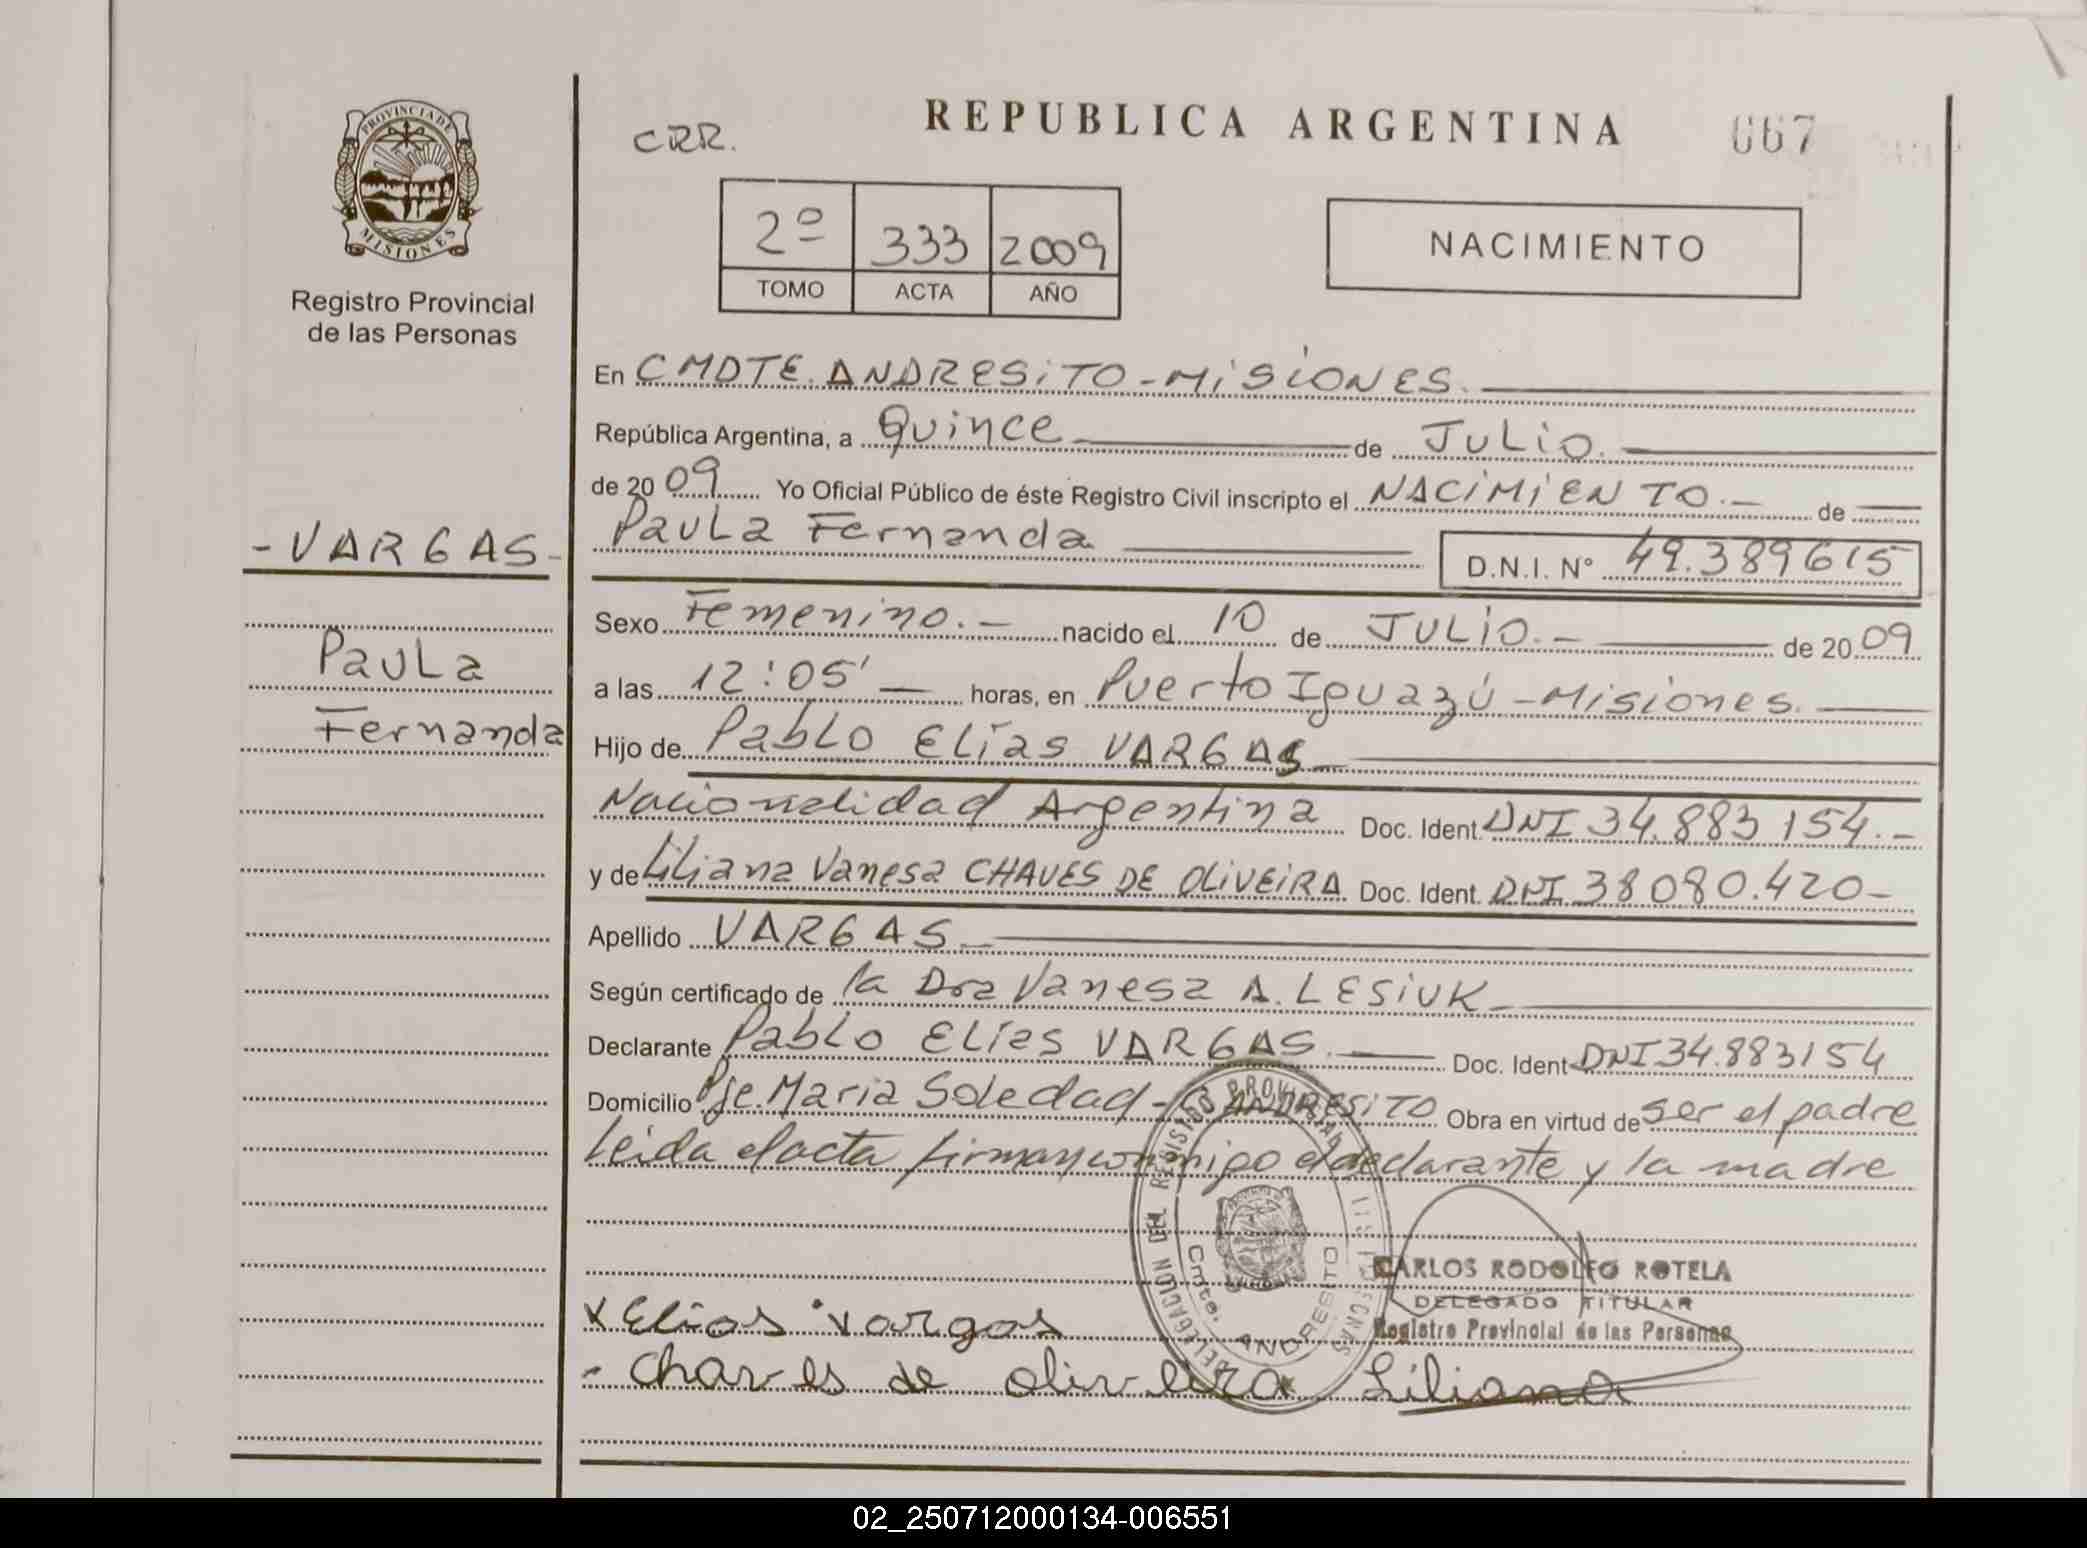 PROVINCIA DE
MISIONES
Registro Provincial
de las Personas
- VARGAS -
Paula
Fernanda
CRR.
REPUBLICA ARGENTINA
067
2º 333 2009
TOMO ACTA AÑO
NACIMIENTO
En CMDTE. ANDRESiTO - MiSiONES.
República Argentina, a Quince de JULiO.
de 2009 Yo Oficial Público de éste Registro Civil inscripto el NACiMiENTO.- de
Paula Fernanda D.N.I. Nº 49.389615
Sexo Femenino.- nacido el 10 de JULiO.- de 2009
a las 12:05' horas, en Puerto Iguazú - Misiones.
Hijo de Pablo Elías VARGAS
Nacionalidad Argentina Doc. Ident. DNI 34.883154.-
y de Liliana Vanesa CHAVES DE OLiVEiRA Doc. Ident. DNI 38080.420-
Apellido VARGAS
Según certificado de la Dra Vanesa A. LESiUK
Declarante Pablo Elías VARGAS. Doc. Ident DNI 34.883154
Domicilio Pje. Maria Soledad - C. ANDRESiTO Obra en virtud de ser el padre
Leida el acta firman conmigo el declarante y la madre
DELEGACION DEL REGISTRO PROVINCIAL DE LAS PERSONAS
Cmte. ANDRESITO
CARLOS RODOLFO ROTELA
DELEGADO TITULAR
Registro Provincial de las Personas
x Elias Vargas
- Chaves de oliveira Liliana
02_250712000134-006551